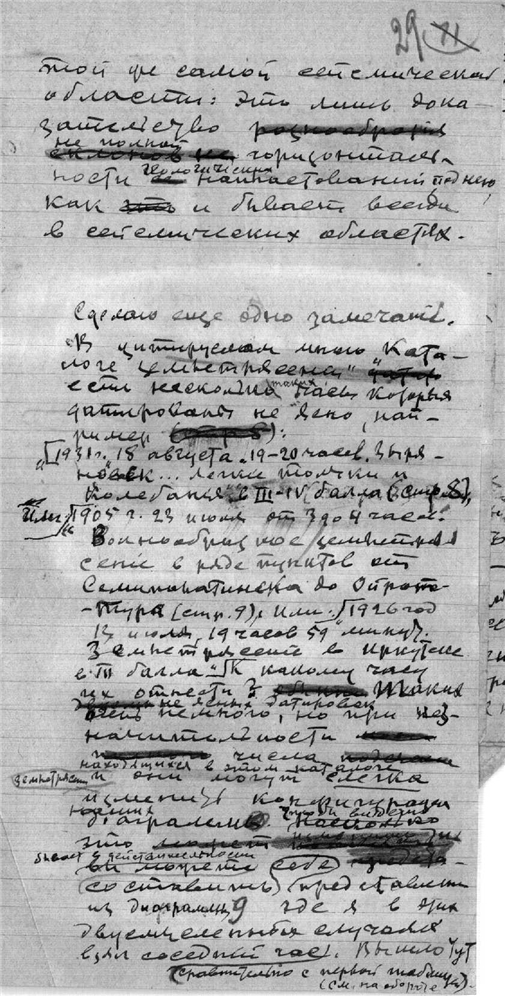 29
той же самой сейсмической
области: это лишь дока-
зательство
не полной
горизонталь-
ности геологических напластований под нею,
как и бывает всегда
в сейсмических областях.
Сделаю еще одно замечание.
В цитируемом мною „Ката-
логе землетрясений“
есть несколько таких часов которые
датированы не ясно, нап-
ример
„1931 г. 18 августа 19-20 часов. Зыря-
новск... легкие толчки и
колебания в III-IV балла (стр. 8),
Или: „1905 г. 23 июля от 3 до 4 часов.
Волнообразное землетря-
сение в ряде пунктов от
Семипалатинска до Ойрот-
Тура (стр. 9). Или: „1926 год
13 июля, 19 часов 59 минут.
Землетрясение в Иркутске
в III балла“ К какому часу
их отнести? Таких
не ясных датировок
немного, но при нез-
начительности
числа
находящихся в этом каталоге
землетрясений они могут слегка
изменить конфигурацию
диаграммы
чтобы видеть
это
бывает в действительности
вы можете себе
составить представление
из диаграммы 9 где я в этих
двусмысленных случаях
взял соседний час. Вышло тут
сравнительно с первой таблицей).
(см. на обороте